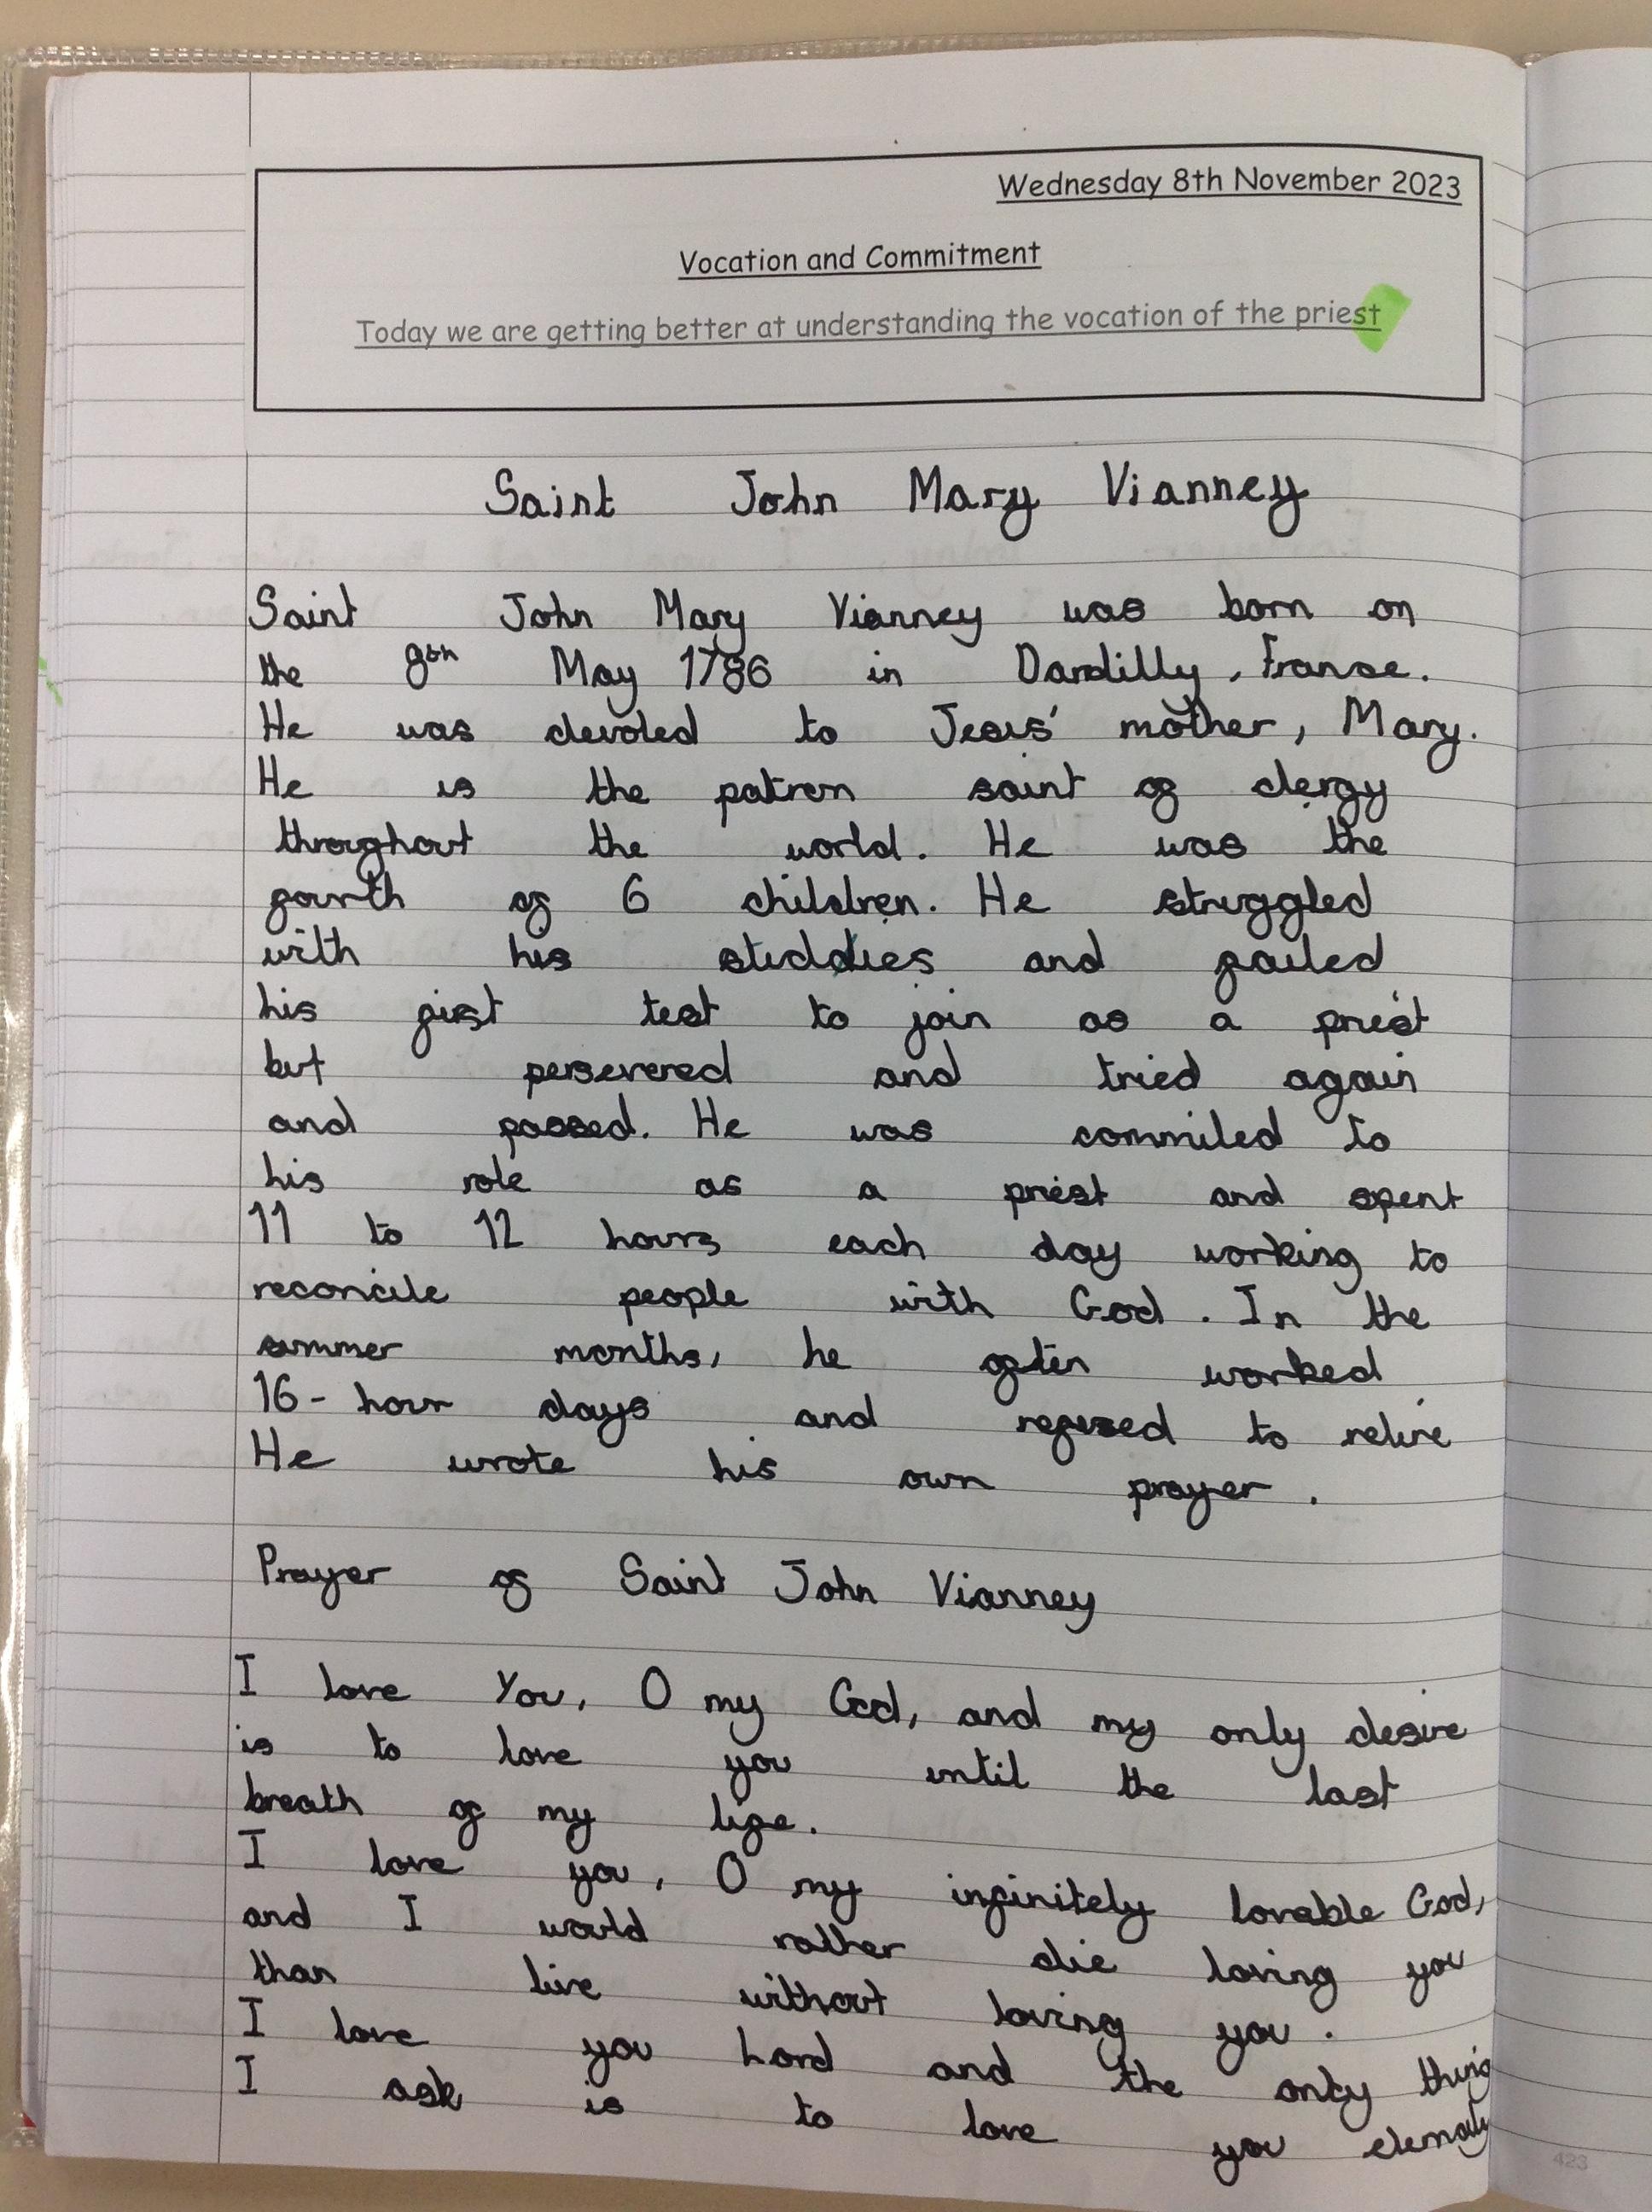 Wednesday 8th November 2023
Vocation and Commitment
Today we are getting better at understanding the vocation of the priest
Saint John Mary Vianney
Saint John Mary Vianney was born on
the 8th May 1786 in Dardilly, France.
He was devoted to Jesus' mother, Mary.
He is the patron saint of clergy
throughout the world. He was the
fourth of 6 children. He struggled
with his studdies and failed
his first test to join as a priest
but persevered and tried again
and passed. He was commited to
his role as a priest and spent
11 to 12 hours each day working to
reconcile people with God. In the
summer months, he often worked
16-hour days and refused to retire
He wrote his own prayer.
Prayer of Saint John Vianney
I love You, O my God, and my only desire
is to love you until the last
breath of my life.
I love you, O my infinitely lovable God,
and I would rather die loving you
than live without loving you.
I love you Lord and the only thing
I ask is to love you eternally
423